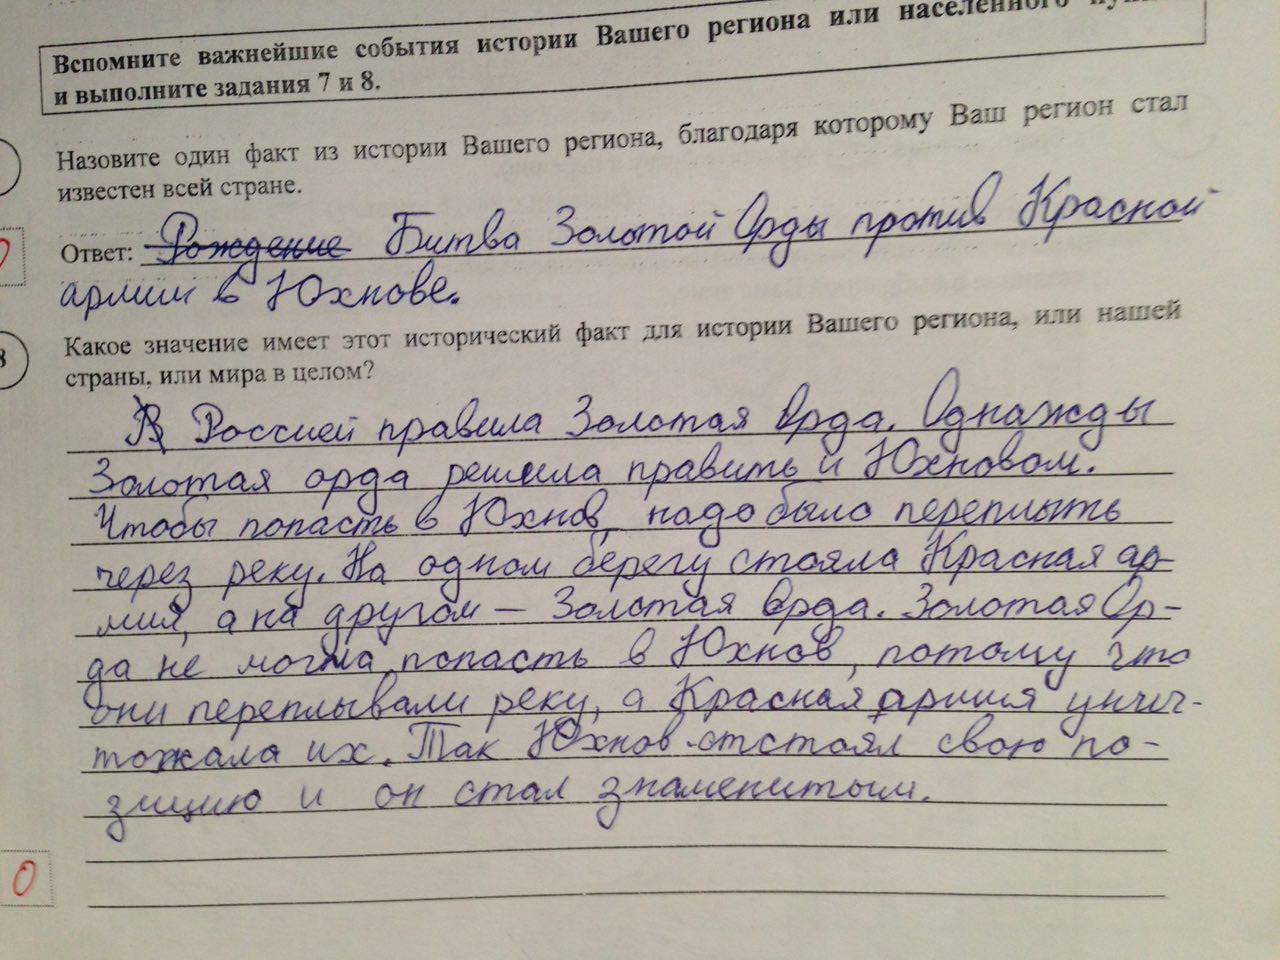 Вспомните важнейшие события истории Вашего региона или населённого
и выполните задания 7 и 8.
Назовите один факт из истории Вашего региона, благодаря которому Ваш регион стал
известен всей стране.
Ответ: Рождение Битва Золотой Орды против Красной
армии в Юхнове.
8
Какое значение имеет этот исторический факт для истории Вашего региона, или нашей
страны, или мира в целом?
В Россией правила Золотая Орда. Однажды
Золотая орда решила править и Юхновом.
Чтобы попасть в Юхнов, надо было переплыть
через реку. На одном берегу стояла Красная ар-
мия, а на другом – Золотая Орда. Золотая Ор-
да не могла попасть в Юхнов, потому что
они переплывали реку, а Красная армия унич-
тожала их. Так Юхнов отстоял свою по-
зицию и он стал знаменитым.
0